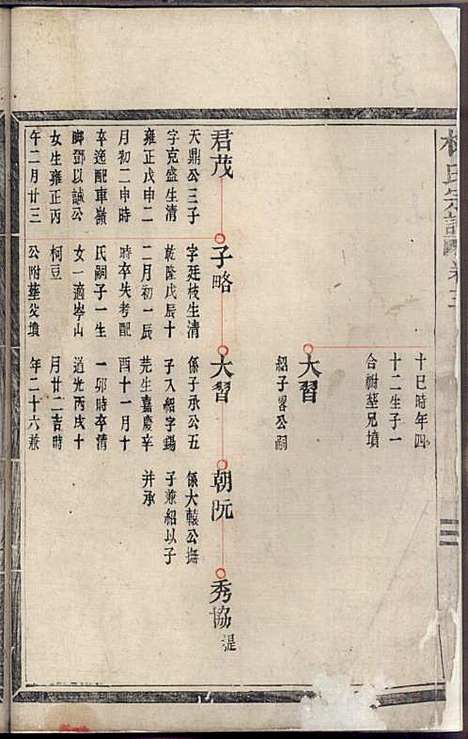 氏宗譜
十巳時年四
十二生子一
合祔塟兄墳
大習
紹子略公嗣
君茂
天鼎公三子
字克盛生清
雍正戊申二
月初二申時
卒逸配車嶺
鄧以誠公
女生雍正丙
午二月廿三
子略
字廷枝生清
乾隆戊辰十
二月初一辰
時卒失考配
氏嗣子一生
女一適岑山
柯豆
公附塟父墳
大習
係子承公五
子入紹字錫
芫生嘉慶辛
酉十一月十
一卯時卒清
道光丙戌十
月廿二吉時
年二十六兼
朝阮
係大轅公撫
子兼紹以子
并承
秀協
提